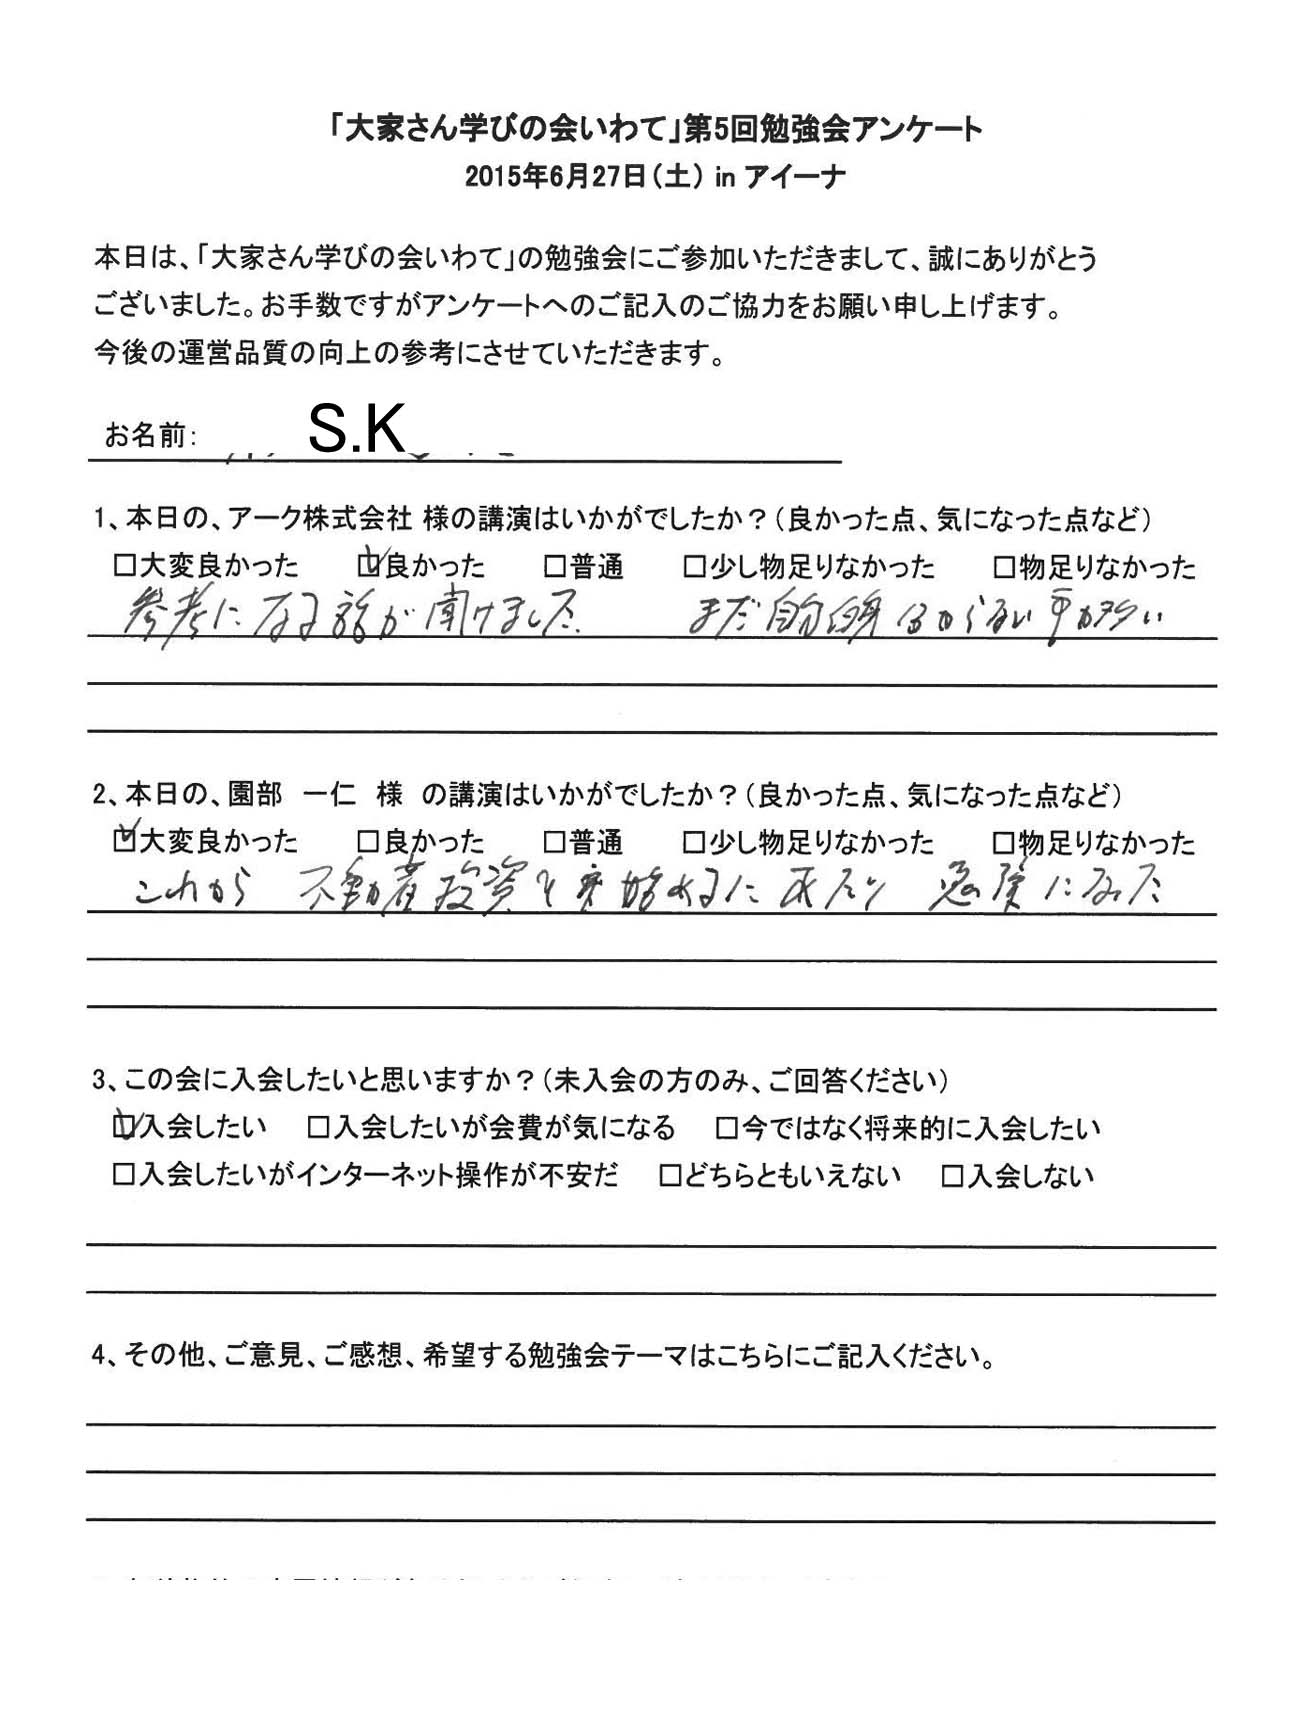 「大家さん学びの会いわて」第5回勉強会アンケート
2015年6月27日（土） in アイーナ
本日は、「大家さん学びの会いわて」の勉強会にご参加いただきまして、誠にありがとう
ございました。お手数ですがアンケートへのご記入のご協力をお願い申し上げます。
今後の運営品質の向上の参考にさせていただきます。
お名前： S.K
1、本日の、アーク株式会社 様の講演はいかがでしたか？（良かった点、気になった点など）
□大変良かった ☑良かった □普通 □少し物足りなかった □物足りなかった
参考になる話が聞けました。 まだ自分自身分からない事が多い
2、本日の、園部 一仁 様 の講演はいかがでしたか？（良かった点、気になった点など）
☑大変良かった □良かった □普通 □少し物足りなかった □物足りなかった
これから 不動産投資を 始めるに あたり 勉強になった
3、この会に入会したいと思いますか？（未入会の方のみ、ご回答ください）
☑入会したい □入会したいが会費が気になる □今ではなく将来的に入会したい
□入会したいがインターネット操作が不安だ □どちらともいえない □入会しない
4、その他、ご意見、ご感想、希望する勉強会テーマはこちらにご記入ください。